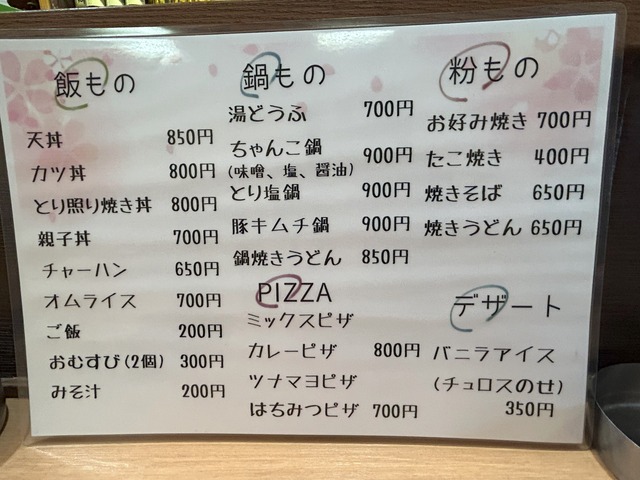 飯もの
天丼 850円
カツ丼 800円
とり照り焼き丼 800円
親子丼 700円
チャーハン 650円
オムライス 700円
ご飯 200円
おむすび(2個) 300円
みそ汁 200円
鍋もの
湯どうふ 700円
ちゃんこ鍋 900円
(味噌、塩、醤油)
とり塩鍋 900円
豚キムチ鍋 900円
鍋焼きうどん 850円
PIZZA
ミックスピザ
カレーピザ 800円
ツナマヨピザ
はちみつピザ 700円
粉もの
お好み焼き 700円
たこ焼き 400円
焼きそば 650円
焼きうどん 650円
デザート
バニラアイス
(チュロスのせ)
350円